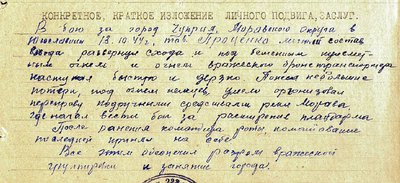 КОНКРЕТНОЕ, КРАТКОЕ ИЗЛОЖЕНИЕ ЛИЧНОГО ПОДВИГА, ЗАСЛУГ.
В бою за город Чуприя, Моравского округа в
Югославии 13.10.44 г. тов. Проценко
взвода развернул с хода и под бешенным пулемет-
ным огнем и огнем вражеского бронетранспортера
наступал быстро и дерзко. Понеся небольшие
потери, под огнем немцев, умело организовал
переправу подручными средствами реки Морава
где начал вести бой за расширение плацдарма
После ранения командира роты командование
последней принял на себя.
Всё этим обеспечил разгром вражеской
группировки и занятие города.